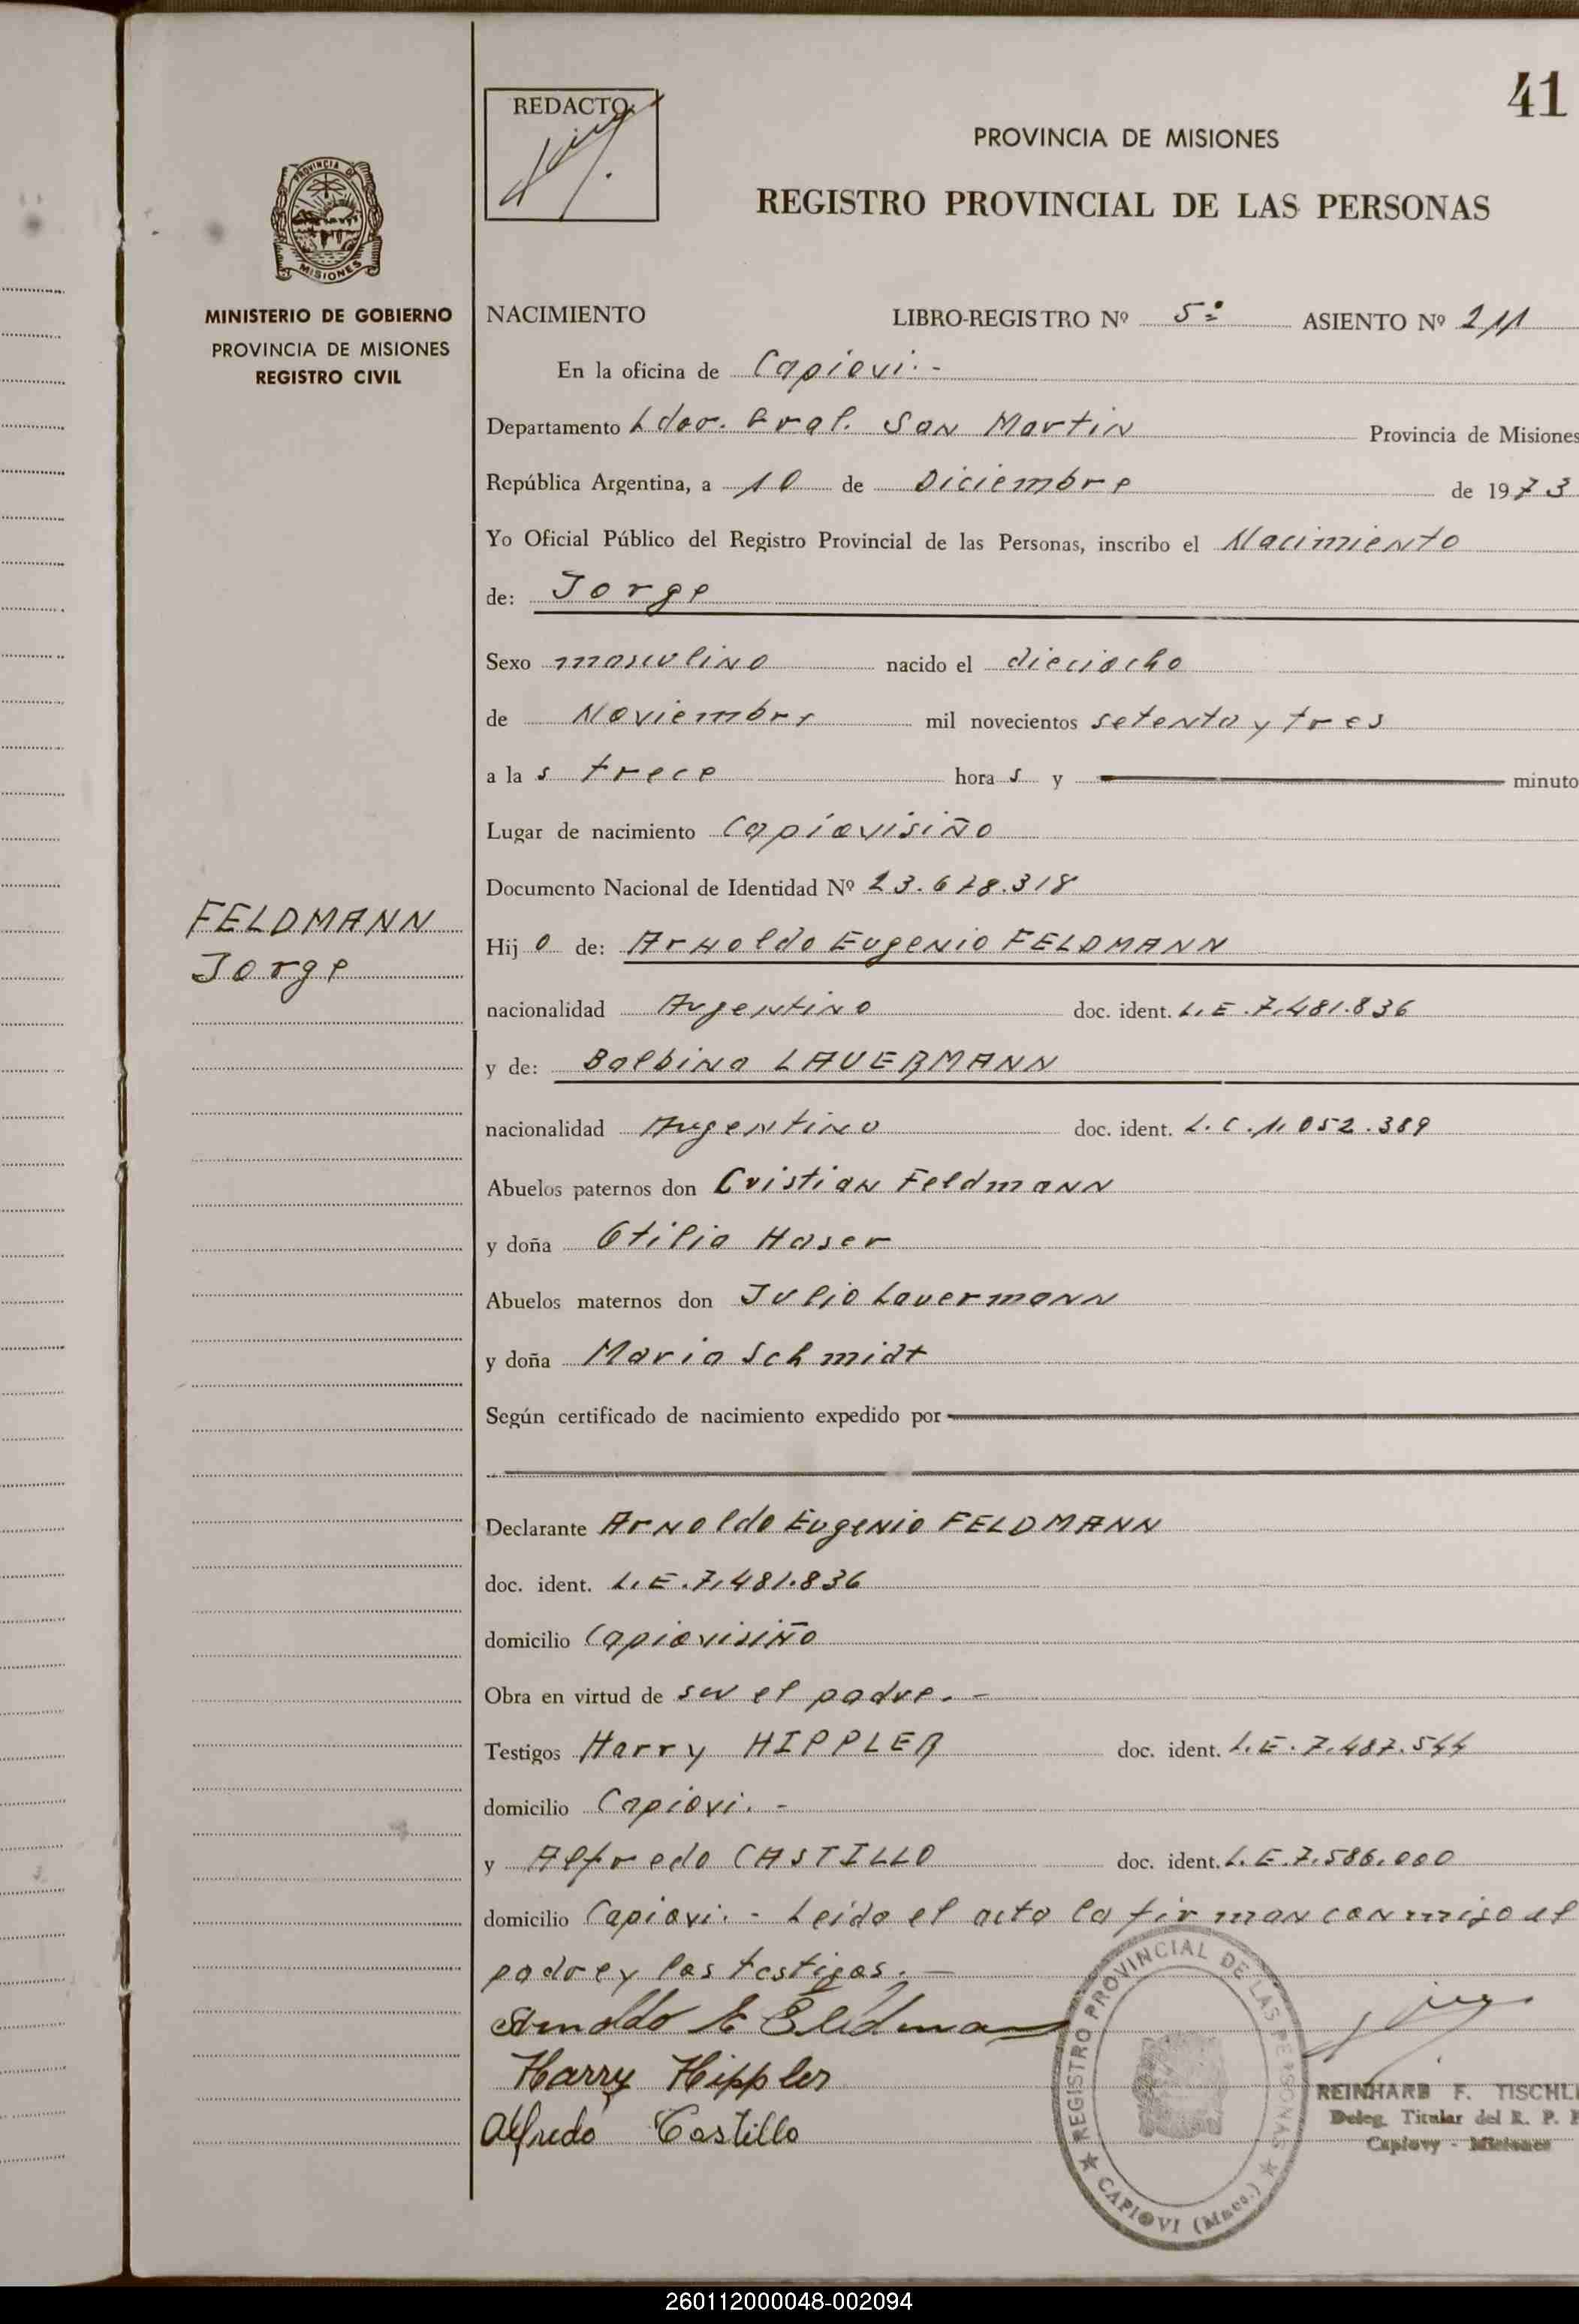 41
REDACTO
PROVINCIA DE MISIONES
REGISTRO PROVINCIAL DE LAS PERSONAS
PROVINCIA DE
MISIONES
MINISTERIO DE GOBIERNO
PROVINCIA DE MISIONES
REGISTRO CIVIL
NACIMIENTO LIBRO-REGISTRO Nº 5º ASIENTO Nº 211
En la oficina de Capiovi.-
Departamento Ldor. Gral. San Martin Provincia de Misiones
República Argentina, a 10 de Diciembre de 1973
Yo Oficial Público del Registro Provincial de las Personas, inscribo el Nacimiento
de: Jorge
Sexo masculino nacido el dieciocho
de Noviembre mil novecientos setenta y tres
a las trece horas y minuto
Lugar de nacimiento Capiovisiño
Documento Nacional de Identidad Nº 23.678.318
FELDMANN
Jorge
Hijo de: Arnoldo Eugenio FELDMANN
nacionalidad Argentino doc. ident. L.E.7.481.836
y de: Balbina LAUERMANN
nacionalidad Argentina doc. ident. L.C.1.052.389
Abuelos paternos don Cristian Feldmann
y doña Otilia Haser
Abuelos maternos don Julio Lauermann
y doña Maria Schmidt
Según certificado de nacimiento expedido por
Declarante Arnoldo Eugenio FELDMANN
doc. ident. L.E.7.481.836
domicilio Capiovisiño
Obra en virtud de ser el padre.-
Testigos Harry HIPPLER doc. ident. L.E.7.487.544
domicilio Capiovi.-
y Alfredo CASTILLO doc. ident. L.E.7.586.000
domicilio Capiovi.- Leida el acta la firman conmigo el
padre y los testigos.-
Arnoldo E Feldman
Harry Hippler
Alfredo Castillo
REGISTRO PROVINCIAL DE LAS PERSONAS
CAPIOVI (Mnes.)
REINHARD F. TISCHL
Deleg. Titular del R. P.
Capiovy - Misiones
260112000048-002094